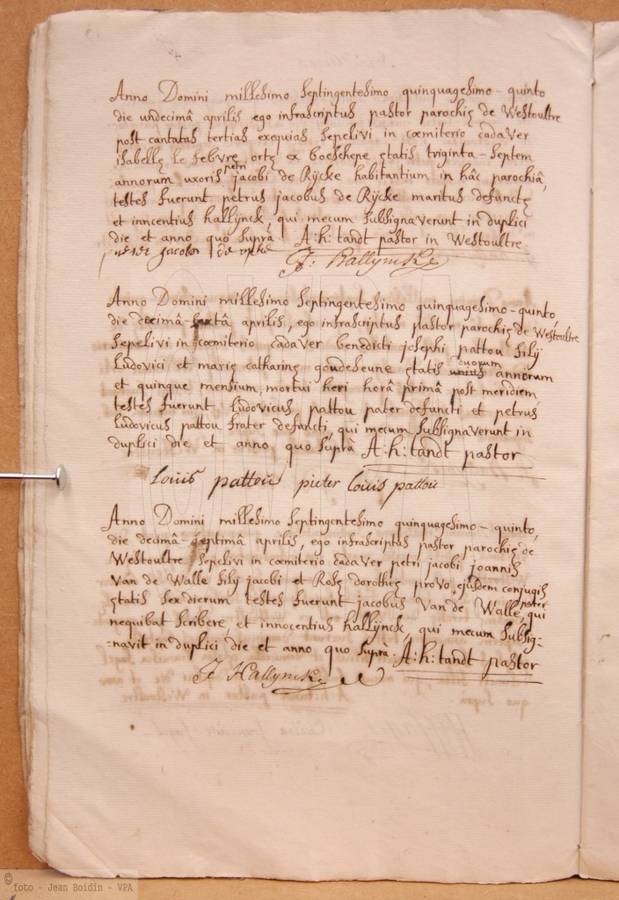 Anno Domini millesimo septingentesimo quinquagesimo-quinto
die undecimâ aprilis ego infrascriptus pastor parochię de Westoultre
post cantatas tertias exequias, sepelivi in cœmiterio cadaver
isabellę le febvre ortę ex boeschepe ętatis triginta-septem
annorum uxoris petri jacobi de Rÿcke habitantium in hâc parochiâ,
testes fuerunt petrus jacobus de Rÿcke maritus defunctę
et inncentius hallÿnck, qui mecum subsignaverunt in duplici
die et anno quo suprà A:h:tandt pastor in Westoultre
pieter jacobus de rycke
J: Hallynck
Anno Domini millesimo septingentesimo quinquagesimo-quinto
die decimâ-sextâ aprilis, ego infrascriptus pastor parochię de Westoultre
sepelivi in cœmiterio cadaver benedicti josephi pattou filij
Ludovici et marię catharinę goudeseune ętatis duorum annorum
et quinque mensium, mortui heri horâ primâ post meridiem
testes fuerunt Ludovicus pattou pater defuncti et petrus
Ludovicus pattou frater defuncti qui mecum subsignaverunt in
duplici die et anno quo suprà A:h:tandt pastor
Louis pattou pieter Louis pattou
Anno Domini millesimo septingentesimo quinquagesimo-quinto,
die decimâ-septimâ aprilis, ego infrascriptus pastor parochię de
Westoultre sepelivi in cœmiterio cadaver petri jacobi joannis
Van de Walle filij jacobi et Rosę dorothęę provo, ejusdem conjugis
ętatis sex dierum testes fuerunt jacobus Van de Walle pater, qui
nequibat scribere et innocentius hallÿnck, qui mecum subsig-
-navit in duplici die et anno quo suprà. A:h:tandt pastor
J: Hallynck
© foto - Jean Boidin - VPA